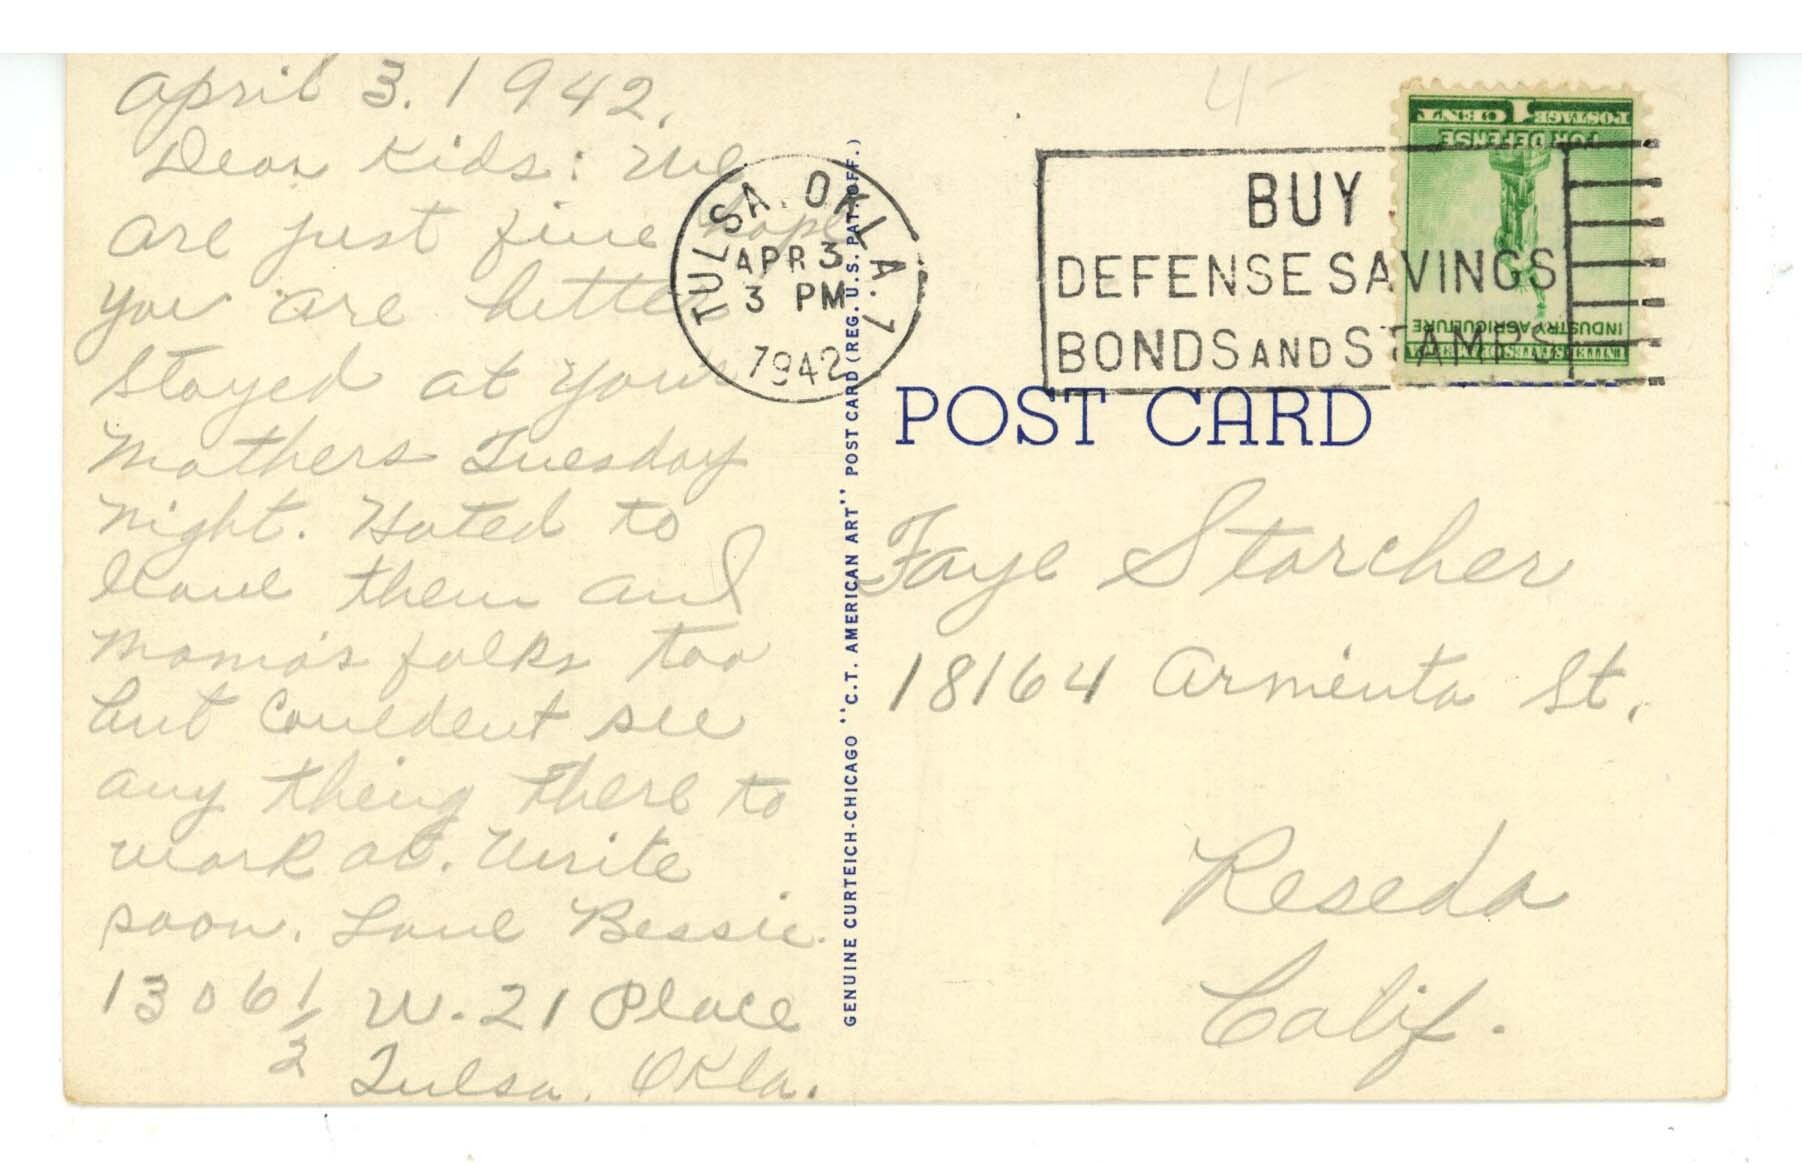 April 3. 1942.
Dear Kids: We
are just fine hope
you are better
Stayed at your
Mothers Tuesday
night. Hated to
leave them and
Moma's folks too
but Couldent see
any theing there to
work at. Write
soon. Love Bessie.
1306 1/2 W. 21 Place
Tulsa, Okla.
GENUINE CURTEICH-CHICAGO "C.T. AMERICAN ART" POST CARD (REG. U.S. PAT. OFF.)
4-
TULSA, OKLA. 1
APR 3
3 PM
1942
BUY
DEFENSE SAVINGS
BONDS AND STAMPS
1 CENT POSTAGE
FOR DEFENSE
INDUSTRY AGRICULTURE
UNITED STATES OF AMERICA
POST CARD
Faye Storcher
18164 Armenta St.
Reseda
Calif.